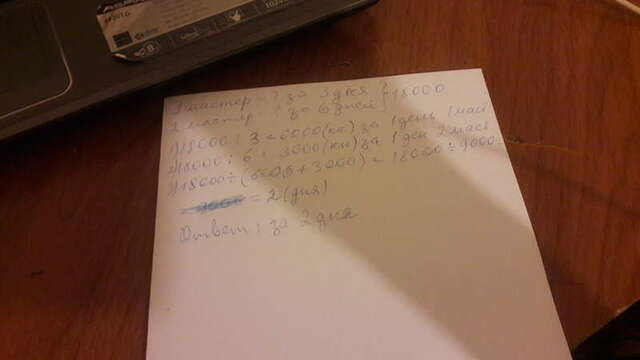 1 мастер - ? за 3 дня } 18000
2 мастер - ? за 6 дней
1) 18000 : 3 = 6000 (кн) за 1 день 1 мас.
2) 18000 : 6 = 3000 (кн) за 1 ден 2 мас.
3) 18000 ÷ (6000 + 3000) = 18000 ÷ 9000 =
= 2 (дня)
Ответ: за 2 дня